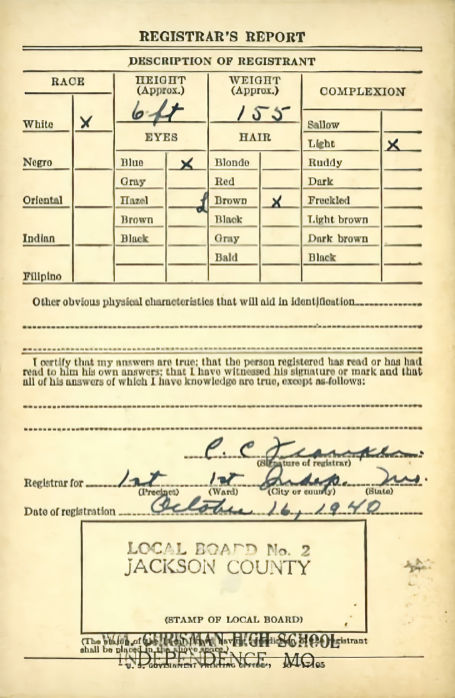 REGISTRAR'S REPORT
DESCRIPTION OF REGISTRANT
RACE
HEIGHT
(Approx.)
6 ft
WEIGHT
(Approx.)
155
COMPLEXION
White X
Negro
Oriental
Indian
Filipino
EYES
Blue X
Gray
Hazel
Brown
Black
HAIR
Blonde
Red
Brown X
Black
Gray
Bald
Sallow
Light X
Ruddy
Dark
Freckled
Light brown
Dark brown
Black
Other obvious physical characteristics that will aid in identification
I certify that my answers are true; that the person registered has read or has had
read to him his own answers; that I have witnessed his signature or mark and that
all of his answers of which I have knowledge are true, except as follows:
C. C
(Signature of registrar)
Registrar for 1st 1st Indep. Mo.
(Precinct) (Ward) (City or county) (State)
Date of registration October 16, 1940
LOCAL BOARD No. 2
JACKSON COUNTY
(STAMP OF LOCAL BOARD)
(The stamp of the registrant
WM. CHRISMAN HIGH SCHOOL
shall be placed in the above space.)
INDEPENDENCE MO.
U. S. GOVERNMENT PRINTING OFFICE